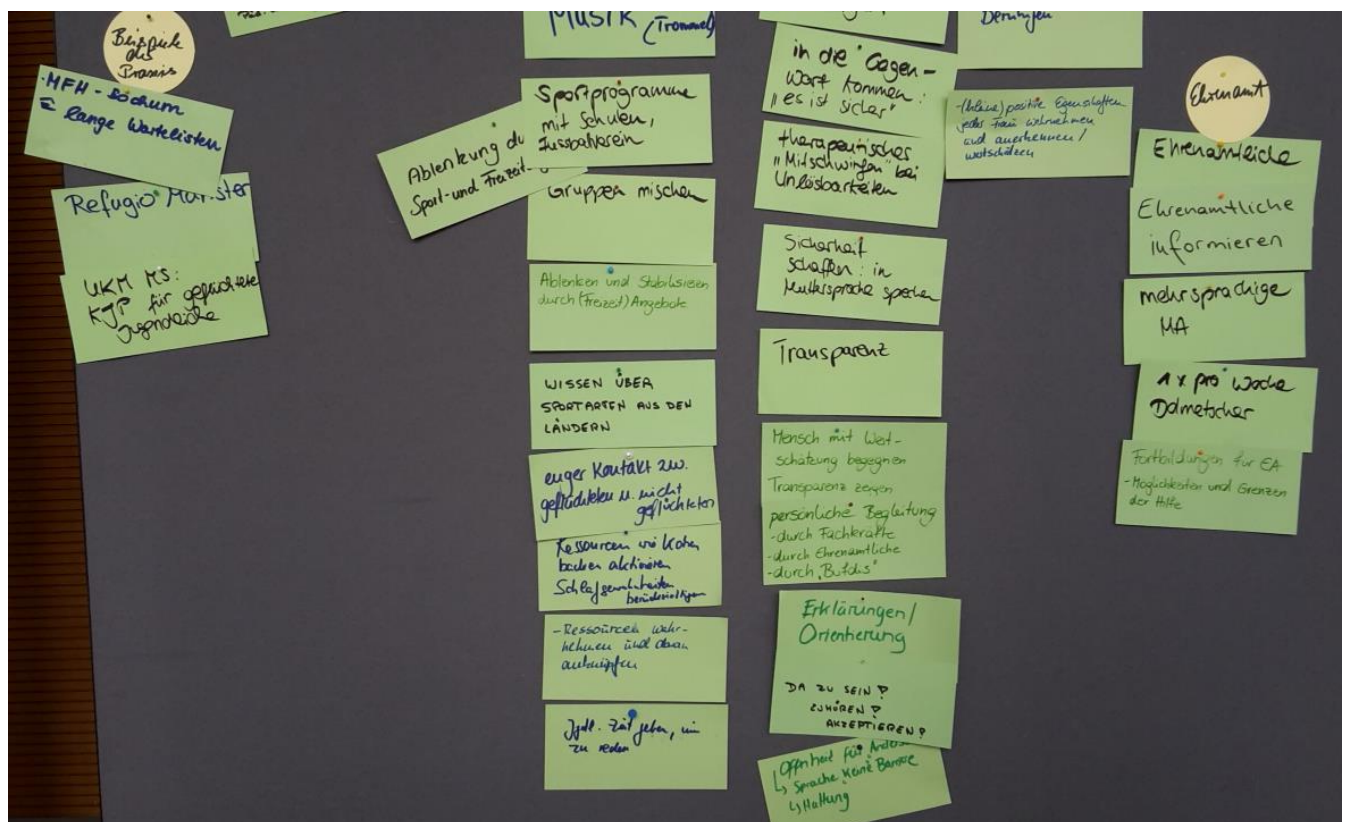 Beispiele
aus
Praxis
-MFH-Bochum
lange Wartelisten
Refugio Münster
UKM MS:
KJP für geflüchtete
Jugendliche
Ablenkung du
Sport- und Freizeit-
Musik (Trommel)
Sportprogramme
mit Schulen,
Fussballverein
Gruppen mischen
Ablenken und Stabilisieren
durch (Freizeit) Angebote
WISSEN ÜBER
SPORTARTEN AUS DEN
LÄNDERN
enger Kontakt zw.
geflüchteten u. nicht
geflüchteten
Ressourcen wie Kochen
backen aktivieren
Schlafgewohnheiten
berücksichtigen
-Ressourcen wahr-
nehmen und daran
anknüpfen
Jgdl. Zeit geben, um
zu reden
in die Gegen-
wart kommen:
"es ist sicher"
therapeutisches
"Mitschwingen" bei
Unlösbarkeiten
Sicherheit
schaffen: in
Muttersprache sprechen
Transparenz
Mensch mit Wert-
schätzung begegnen
Transparenz zeigen
persönliche Begleitung
-durch Fachkräfte
-durch Ehrenamtliche
-durch "Bufdis"
Erklärungen/
Orientierung
DA ZU SEIN?
ZUHÖREN?
AKZEPTIEREN?
Offenheit für
↳ Sprache keine Barriere
↳ Haltung
-(kleine) positive Eigenschaften
jeder Frau wahrnehmen
und anerkennen/
wertschätzen
Ehrenamt
Ehrenamtliche
Ehrenamtliche
informieren
mehrsprachige
MA
1 x pro Woche
Dolmetscher
Fortbildungen für EA
-Möglichkeiten und Grenzen
der Hilfe